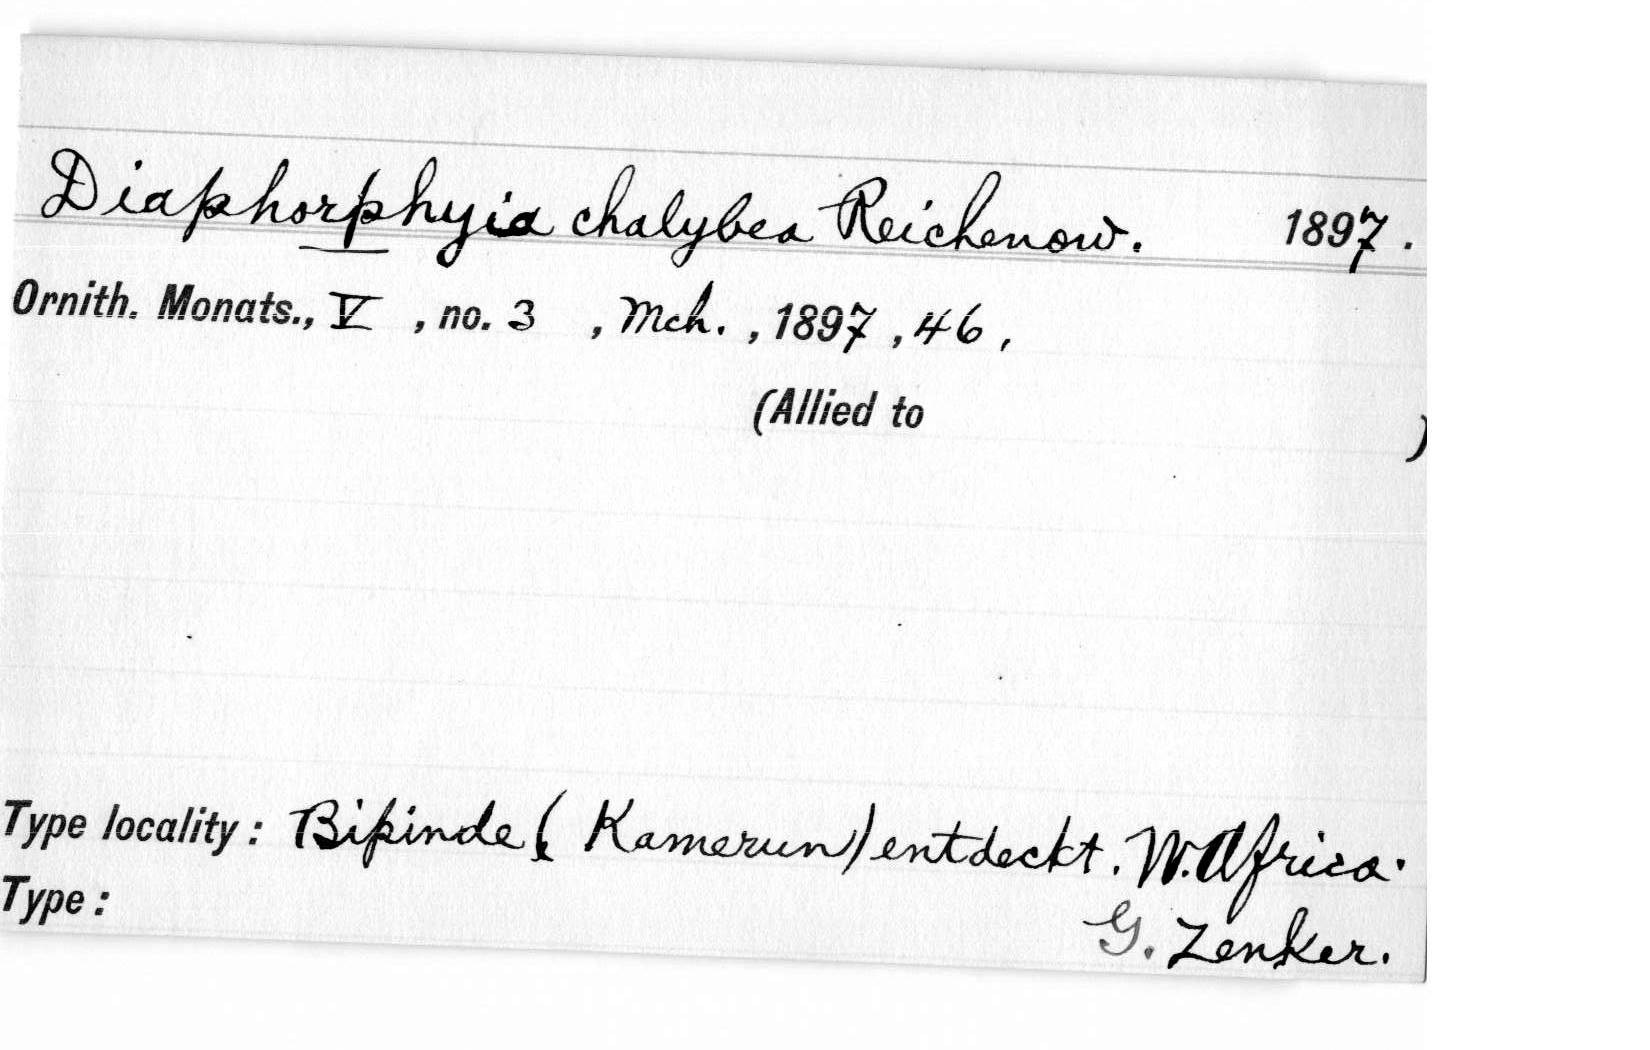 Diaphorphyia chalybea Reichenow. 1897.
Ornith. Monats., V , no. 3 , Mch. , 1897 , 46 ,
(Allied to )
Type locality : Bipinde ( Kamerun) entdeckt. W. Africa.
Type : G. Zenker.